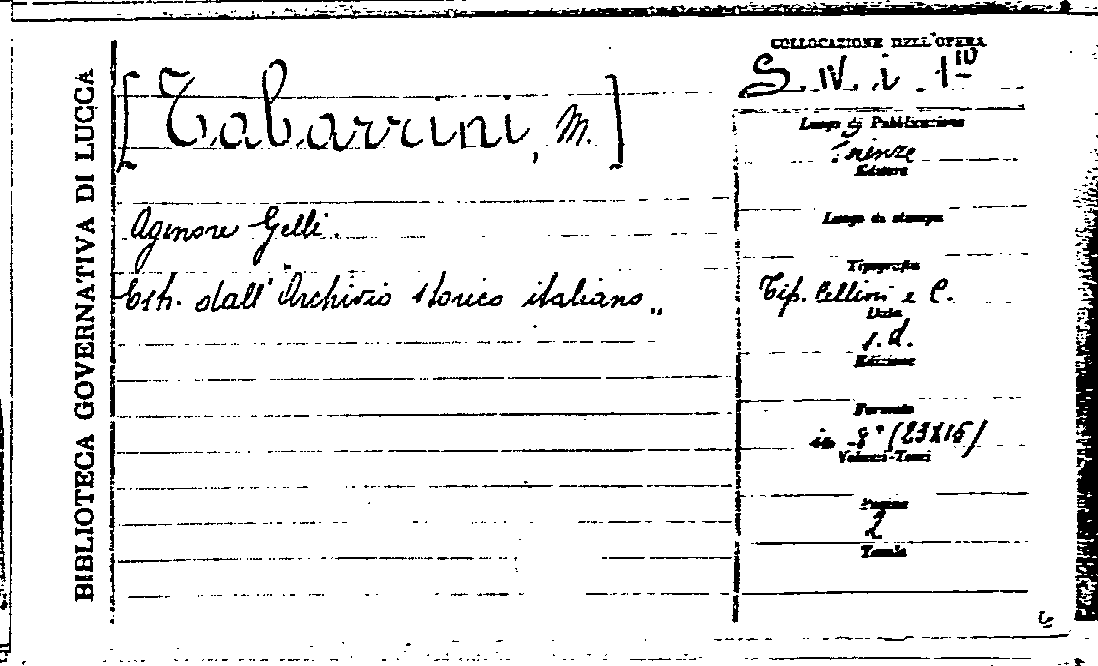 BIBLIOTECA GOVERNATIVA DI LUCCA
[Tabarrini, M.]
Agenore Gelli.
Estr. dall' "Archivio storico italiano"
COLLOCAZIONE DELL'OPERA
S. IV. i. 1
Luogo di Pubblicazione
Firenze
Editore
Luogo di stampa
Tipografia
Tip. Cellini e C.
Data
s.d.
Edizione
Formato
in 8° (23X15)
Volumi-Tomi
Pagine
2
Tavole